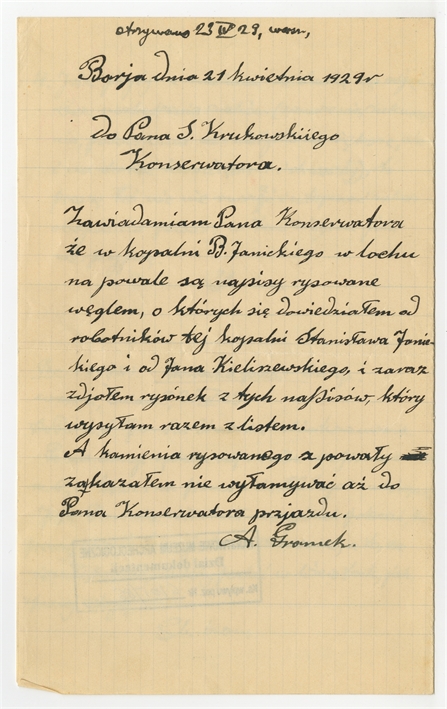 otrzymano 23 IV 29,
Borja dnia 21 kwietnia 1929r
do Pana S. Krukowskiego
Konserwatora.
Zawiadamiam Pana Konserwatora
że w kopalni B. Janickiego w lochu
na powale są napisy rysowane
węglem, o których się dowiedziałem od
robotników tej kopalni Stanisława Janic-
kiego i od Jana Kieliszewskiego, i zaraz
zdjołem rysónek z tych napisów, który
wysyłam razem z listem.
A kamienia rysowanego z powały
zakazałem nie wyłamywać aż do
Pana Konserwatora przjazdu.
A. Gromek.